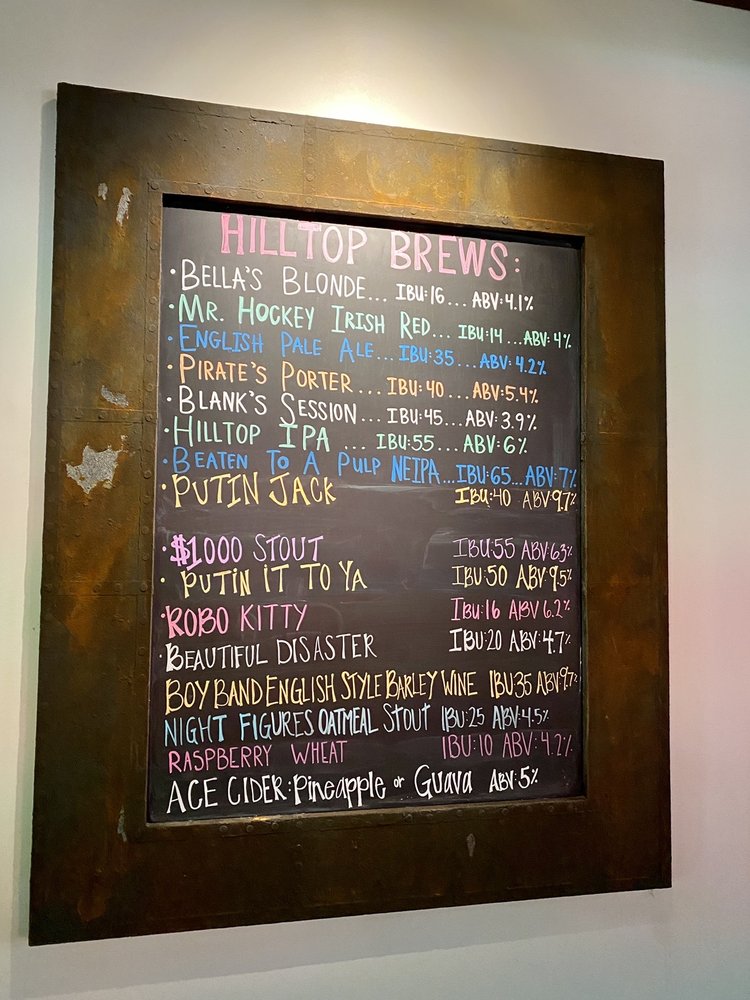 HILLTOP BREWS:
·BELLA'S BLONDE... IBU:16... ABV:4.1%
·MR. HOCKEY IRISH RED... IBU:14 ...ABV:4%
·ENGLISH PALE ALE...IBU:35... ABV:4.2%
·PIRATE'S PORTER...IBU:40 ...ABV:5.4%
·BLANK'S SESSION...IBU:45...ABV:3.9%
·HILLTOP IPA ... IBU:55... ABV:6%
·BEATEN TO A PULP NEIPA...IBU:65...ABV:7%
·PUTIN JACK IBU:40 ABV:9.7%
·$1000 STOUT IBU:55 ABV:6.3%
· PUTIN IT TO YA IBU:50 ABV:9.5%
·ROBO KITTY IBU:16 ABV 6.2%
·BEAUTIFUL DISASTER IBU:20 ABV:4.7%
BOY BAND ENGLISH STYLE BARLEY WINE IBU:35 ABV:9.7%
NIGHT FIGURES OATMEAL STOUT IBU:25 ABV:4.5%
RASPBERRY WHEAT IBU:10 ABV:4.2%
ACE CIDER:Pineapple or Guava ABV:5%